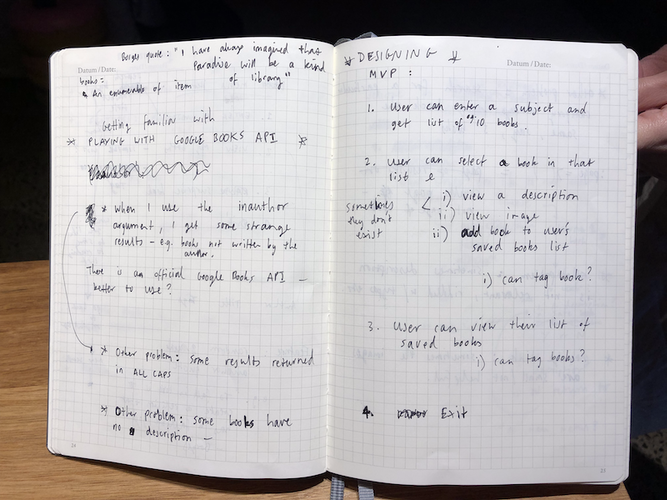 Borges quote: "I have always imagined that
Paradise will be a kind
of library"
Datum / Date:
books =
An enumerable of item
Getting familiar with
* PLAYING WITH GOOGLE BOOKS API *
* When I use the inauthor
argument, I get some strange
results - e.g. books not written by the
author.
There is an official Google Books API -
better to use?
* Other problem: some results returned
in ALL CAPS
* Other problem: some books have
no description -
* DESIGNING *
Datum / Date:
MVP:
1. User can enter a subject and
get list of eg. 10 books.
2. User can select a book in that
list
sometimes
they don't
exist
< i) view a description
ii) view image
ii) add book to user's
saved books list
i) can tag book?
3. User can view their list of
saved books
i) can tag books?
4. Exit